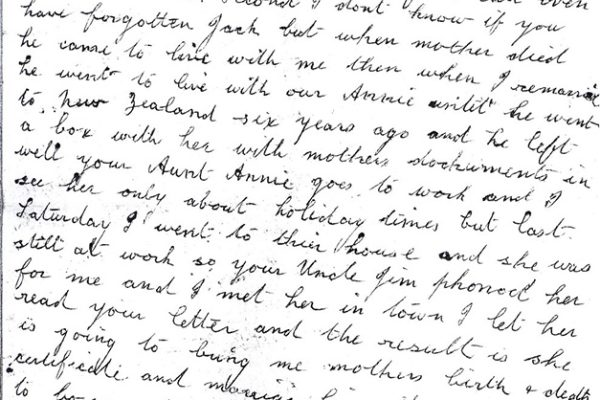 second I dont know if you
have forgotten Jack but when mother died
he came to live with me then when I remarried
he went to live with our Annie untill he went
to New Zealand six years ago and he left
a box with her with mothers dockuments in
well your Aunt Annie goes to work and I
see her only about holiday times but last
Saturday I went to thier house and she was
still at work so your Uncle Jim phoned her
for me and I met her in town I let her
read your letter and the result is she
is going to bring me mothers birth & death
certificate and
to